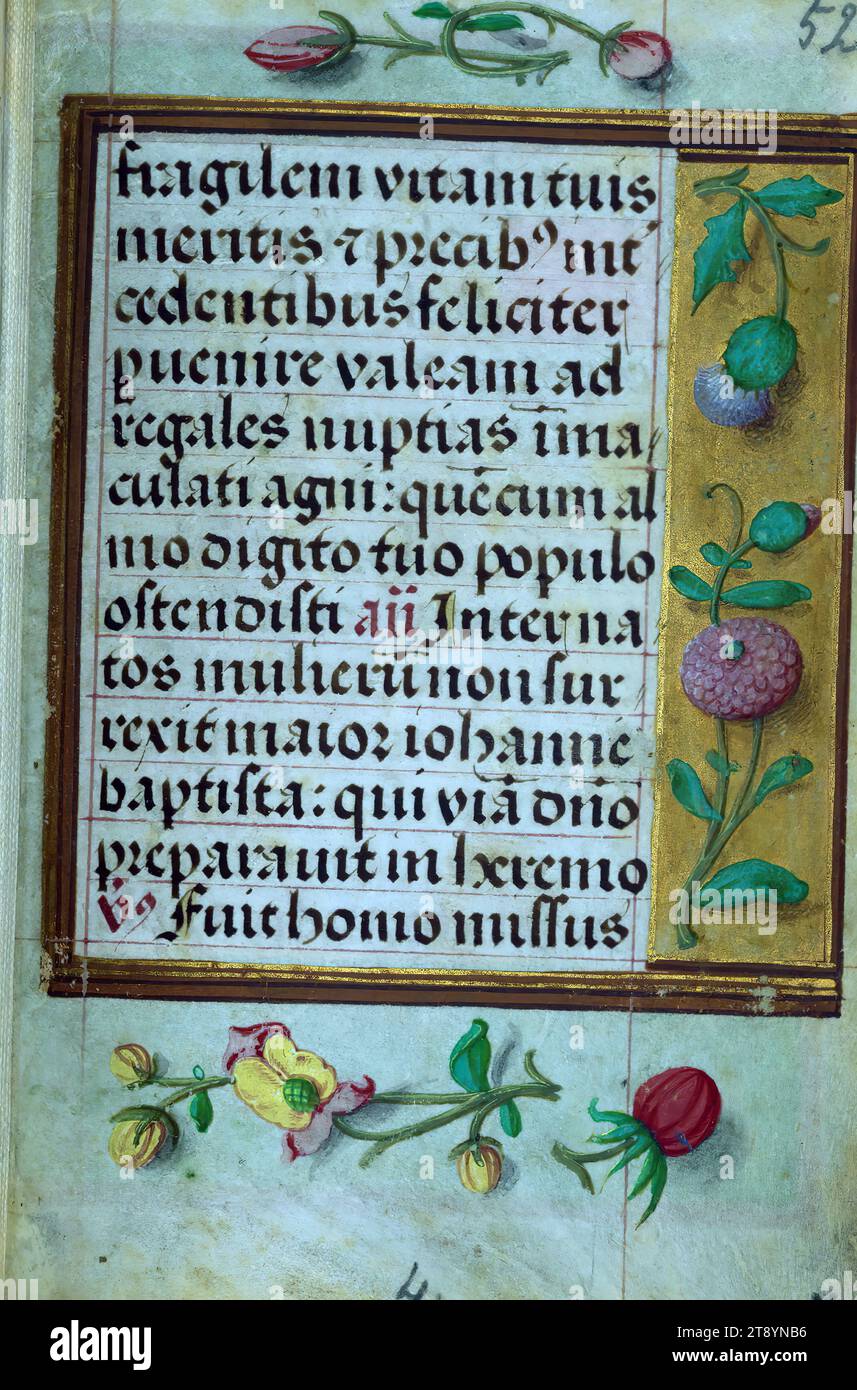 52
fragilem vitam tuis
meritis ⁊ precibꝰ int̄
cedentibus feliciter
ꝑuenire valeam ad
regales nuptias īma
culati agni: quēcum al
mo digito tuo populo
ostendisti añ Interna
tos mulierū non sur
rexit maior iohanne
baptista: qui viā dño
preparauit in heremo
Vꝰ Fuit homo missus
4
alamy
Image ID: 2T8YNB6
www.alamy.com